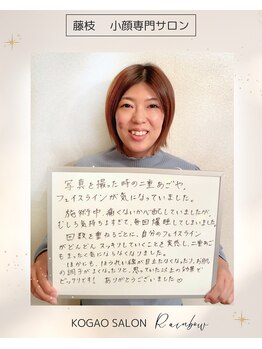 藤枝 小顔専門サロン
写真を撮った時の二重あごや、
フェイスラインが気になっていました。
施術中、痛くないか心配していましたが、
むしろ気持ちよすぎて、毎回爆睡してしまいます。
回数を重ねるごとに、自分のフェイスライン
がどんどんスッキリしていくことを実感し、二重あご
もまったく気にならなくなりました。
ほかにも、ほうれい線が目立たなくなったり、お肌
の調子がよくなったりと、思っていた以上の効果で
ビックリです! ありがとうございました♡
KOGAO SALON Rainbow